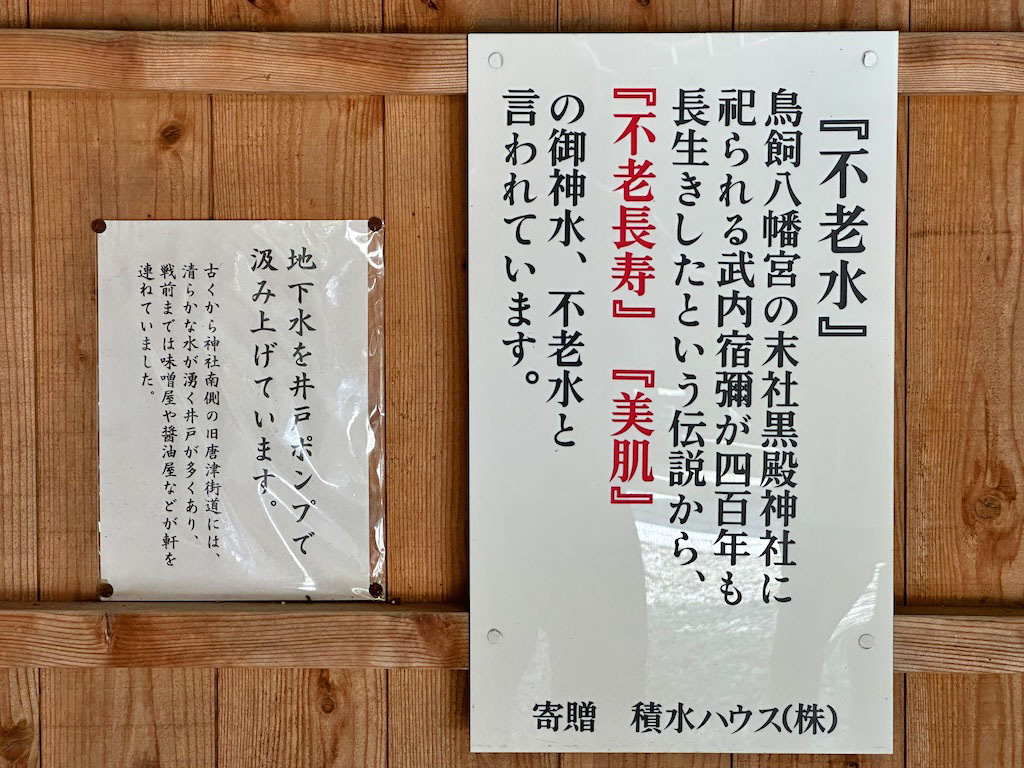 『不老水』
鳥飼八幡宮の末社黒殿神社に
祀られる武内宿彌が四百年も
長生きしたという伝説から、
『不老長寿』『美肌』
の御神水、不老水と
言われています。
寄贈　積水ハウス(株)
地下水を井戸ポンプで
汲み上げています。
古くから神社南側の旧唐津街道には、
清らかな水が湧く井戸が多くあり、
戦前までは味噌屋や醤油屋などが軒を
連ねていました。